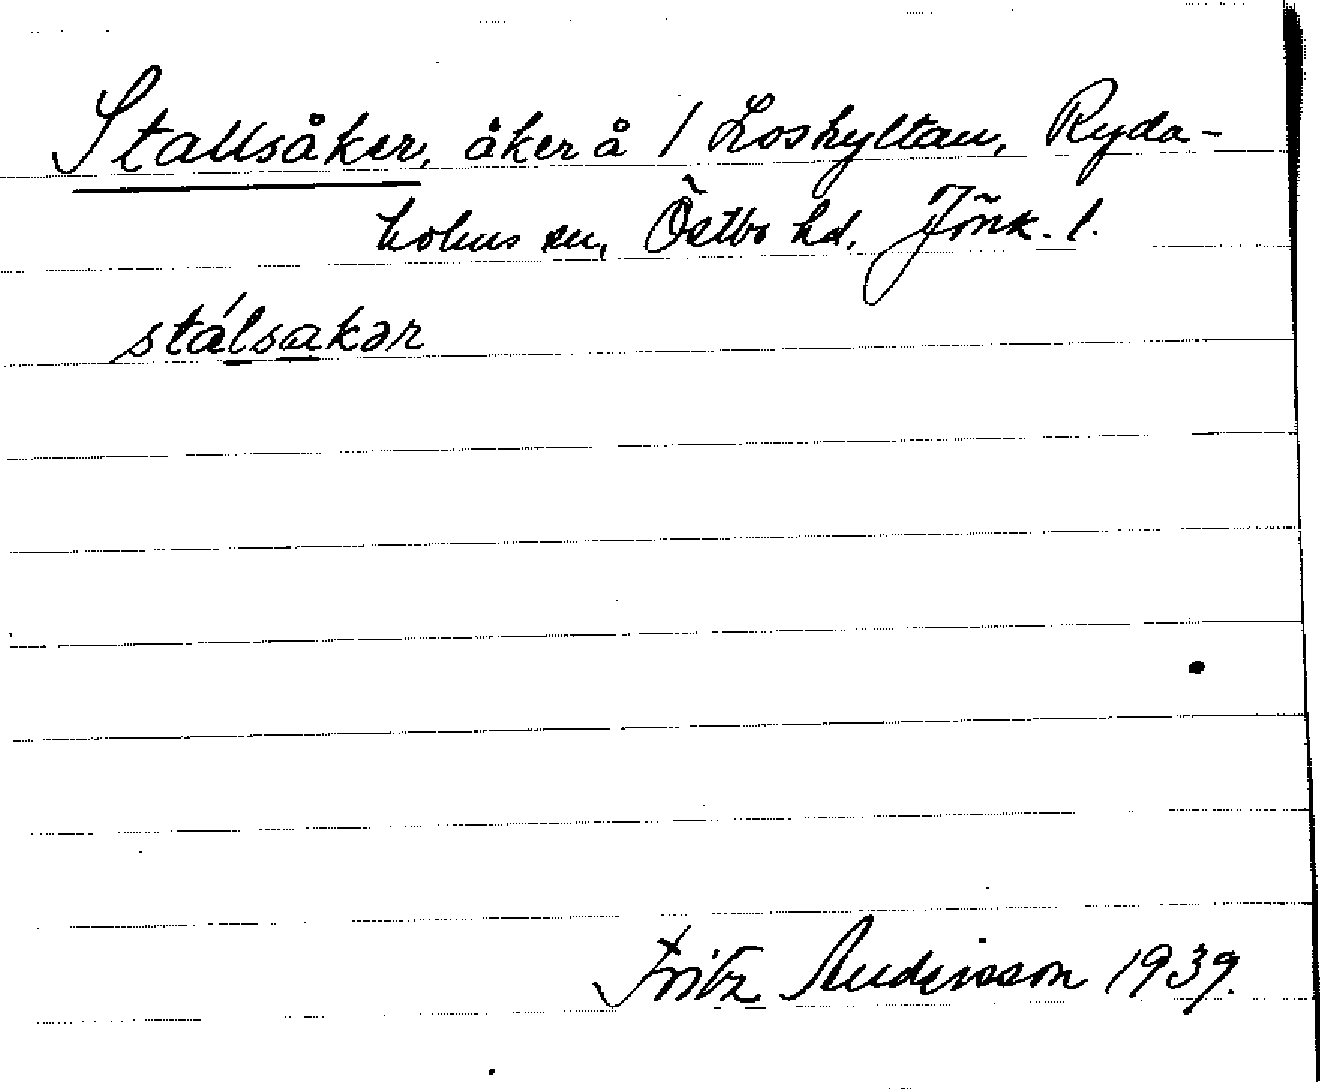 Stallsåker, åker å 1 Loshyltan, Ryda-
holms sn, Östbo hd, Jönk. l.
stálsakər
Fritz Andersson 1939.